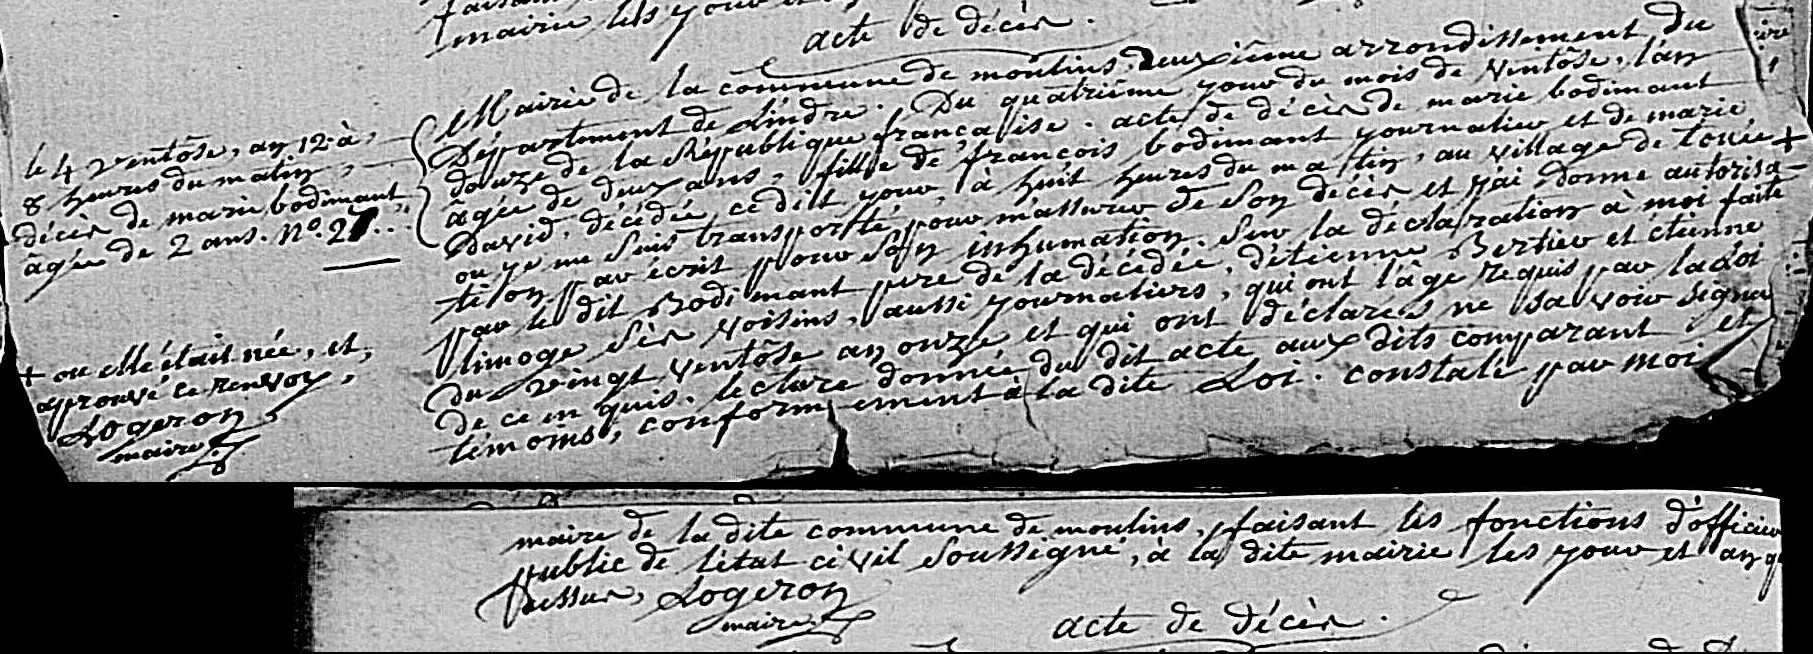 mairie les jour et
acte de décès.
le 4 ventôse, an 12. à
8 heures du matin,
décès de marie bodimant,
âgée de 2 ans. N.° 27..
Mairie de la commune de moulins, Deuxième arrondissement du
Département de Lindre. Du quatrième jour du mois de ventôse, l'an
douze de la République française. acte de décès de marie bodimant
âgée de deux ans, fille de françois bodimant journalier et de marie
David, décédée ce dit jour, à huit heures du matin, au village de +
ou je me suis transporté pour m'assurer de son décès et j'ai donné autorisa-
tion par écrit pour son inhumation. Sur la déclaration à moi faite
par le dit Bodimant père de la décédée, d'étienne Bertier et étienne
limoge ses voisins, aussi journaliers, qui ont l'âge requis par la Loi
du vingt ventôse an onze et qui ont déclarés ne savoir signer
de ce enquis. lecture donnée du dit acte aux dits comparant et
témoins, conformement à la dite Loi. constaté par moi
+ ou elle était née, et,
aprouvé ce renvoy,
Logeron
maire
maire de la dite commune de moulins, faisant les fonctions d'officier
public de l'état civil soussigné, à la dite mairie les jour et an
dessus, Logeron
maire
acte de décès.